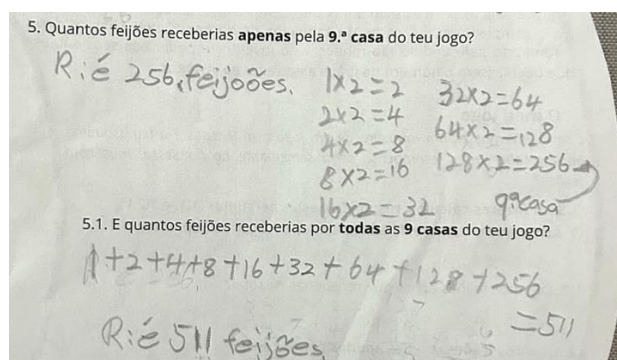 5. Quantos feijões receberias apenas pela 9.ª casa do teu jogo?
R:é 256 feijoões.
1x2=2
2x2=4
4x2=8
8x2=16
16x2=32
32x2=64
64x2=128
128x2=256
9ªcasa
5.1. E quantos feijões receberias por todas as 9 casas do teu jogo?
1+2+4+8+16+32+64+128+256
=511
R:é 511 feijões